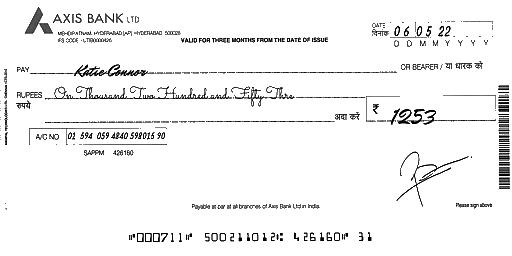 AXIS BANK LTD
MEHDIPATNAM, HYDERABAD [AP] HYDERABAD 500028
IFS CODE - UTIB0000426
VALID FOR THREE MONTHS FROM THE DATE OF ISSUE
DATE
दिनांक 06 05 22
D D M M Y Y Y Y
PAY Katie Connor OR BEARER / या धारक को
RUPEES On Thousand Two Hundred and Fifty Thre
रुपये अदा करें ₹ 1253
A/C NO 01 594 059 4840 598016 90
SAPPM 426160
Payable at par at all branches of Axis Bank Ltd in India.
Please sign above
⑈000711⑈ 500211012⑆ 426160⑈ 31